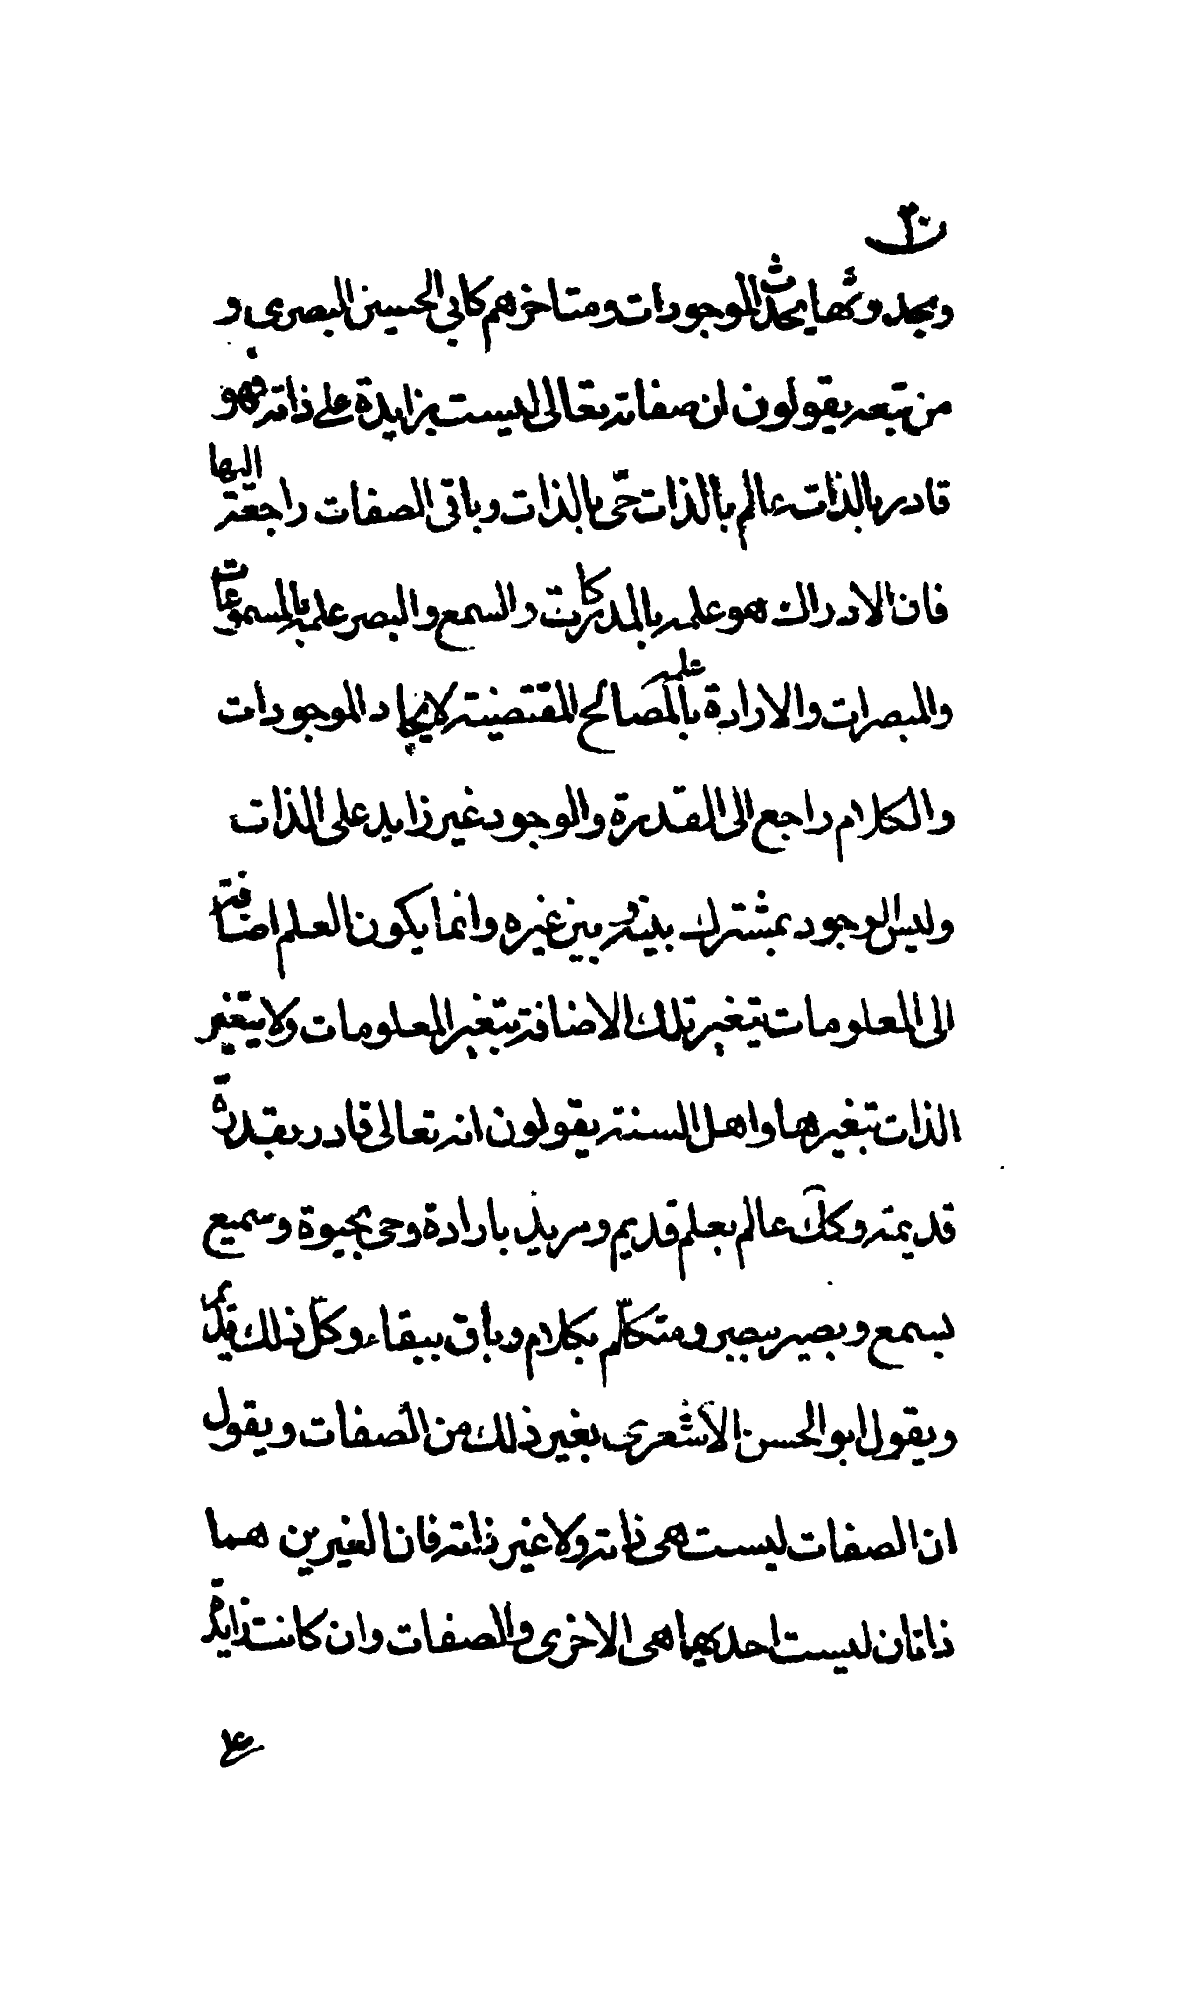 وبحدوثها يحدث الموجودات ومتاخرهم كابي الحسين البصري و
من تبعه يقولون ان صفاته تعالى ليست بزايدة على ذاته فهو
قادر بالذات عالم بالذات حيّ بالذات وباقى الصفات راجعة اليها
فان الادراك هو علمه بالمدركات والسمع والبصر علمه بالمسموعات
والمبصرات والارادة علمه بالمصالح المقتضية لايجاد الموجودات
والكلام راجع الى القدرة والوجود غير زايد على الذات
وليس الوجود بمشترك بينه و بين غيره وانما يكون العلم اضافة
الى المعلومات يتغير تلك الاضافة بتغير المعلومات ولا يتغير
الذات بتغيرها واهل السنة يقولون انه تعالى قادر بقدرة
قديمة وكك عالم بعلم قديم ومريد بارادة وحى بحيوة وسميع
بسمع وبصير ببصر ومتكلّم بكلام وباق ببقاء وكلّ ذلك قديم
ويقول ابو الحسن الاشعري بغير ذلك من الصفات ويقول
ان الصفات ليست هى ذاته ولا غير ذاته فان الغيرين هما
ذاتان ليست احديهما هى الاخرى والصفات وان كانت زايدة
على